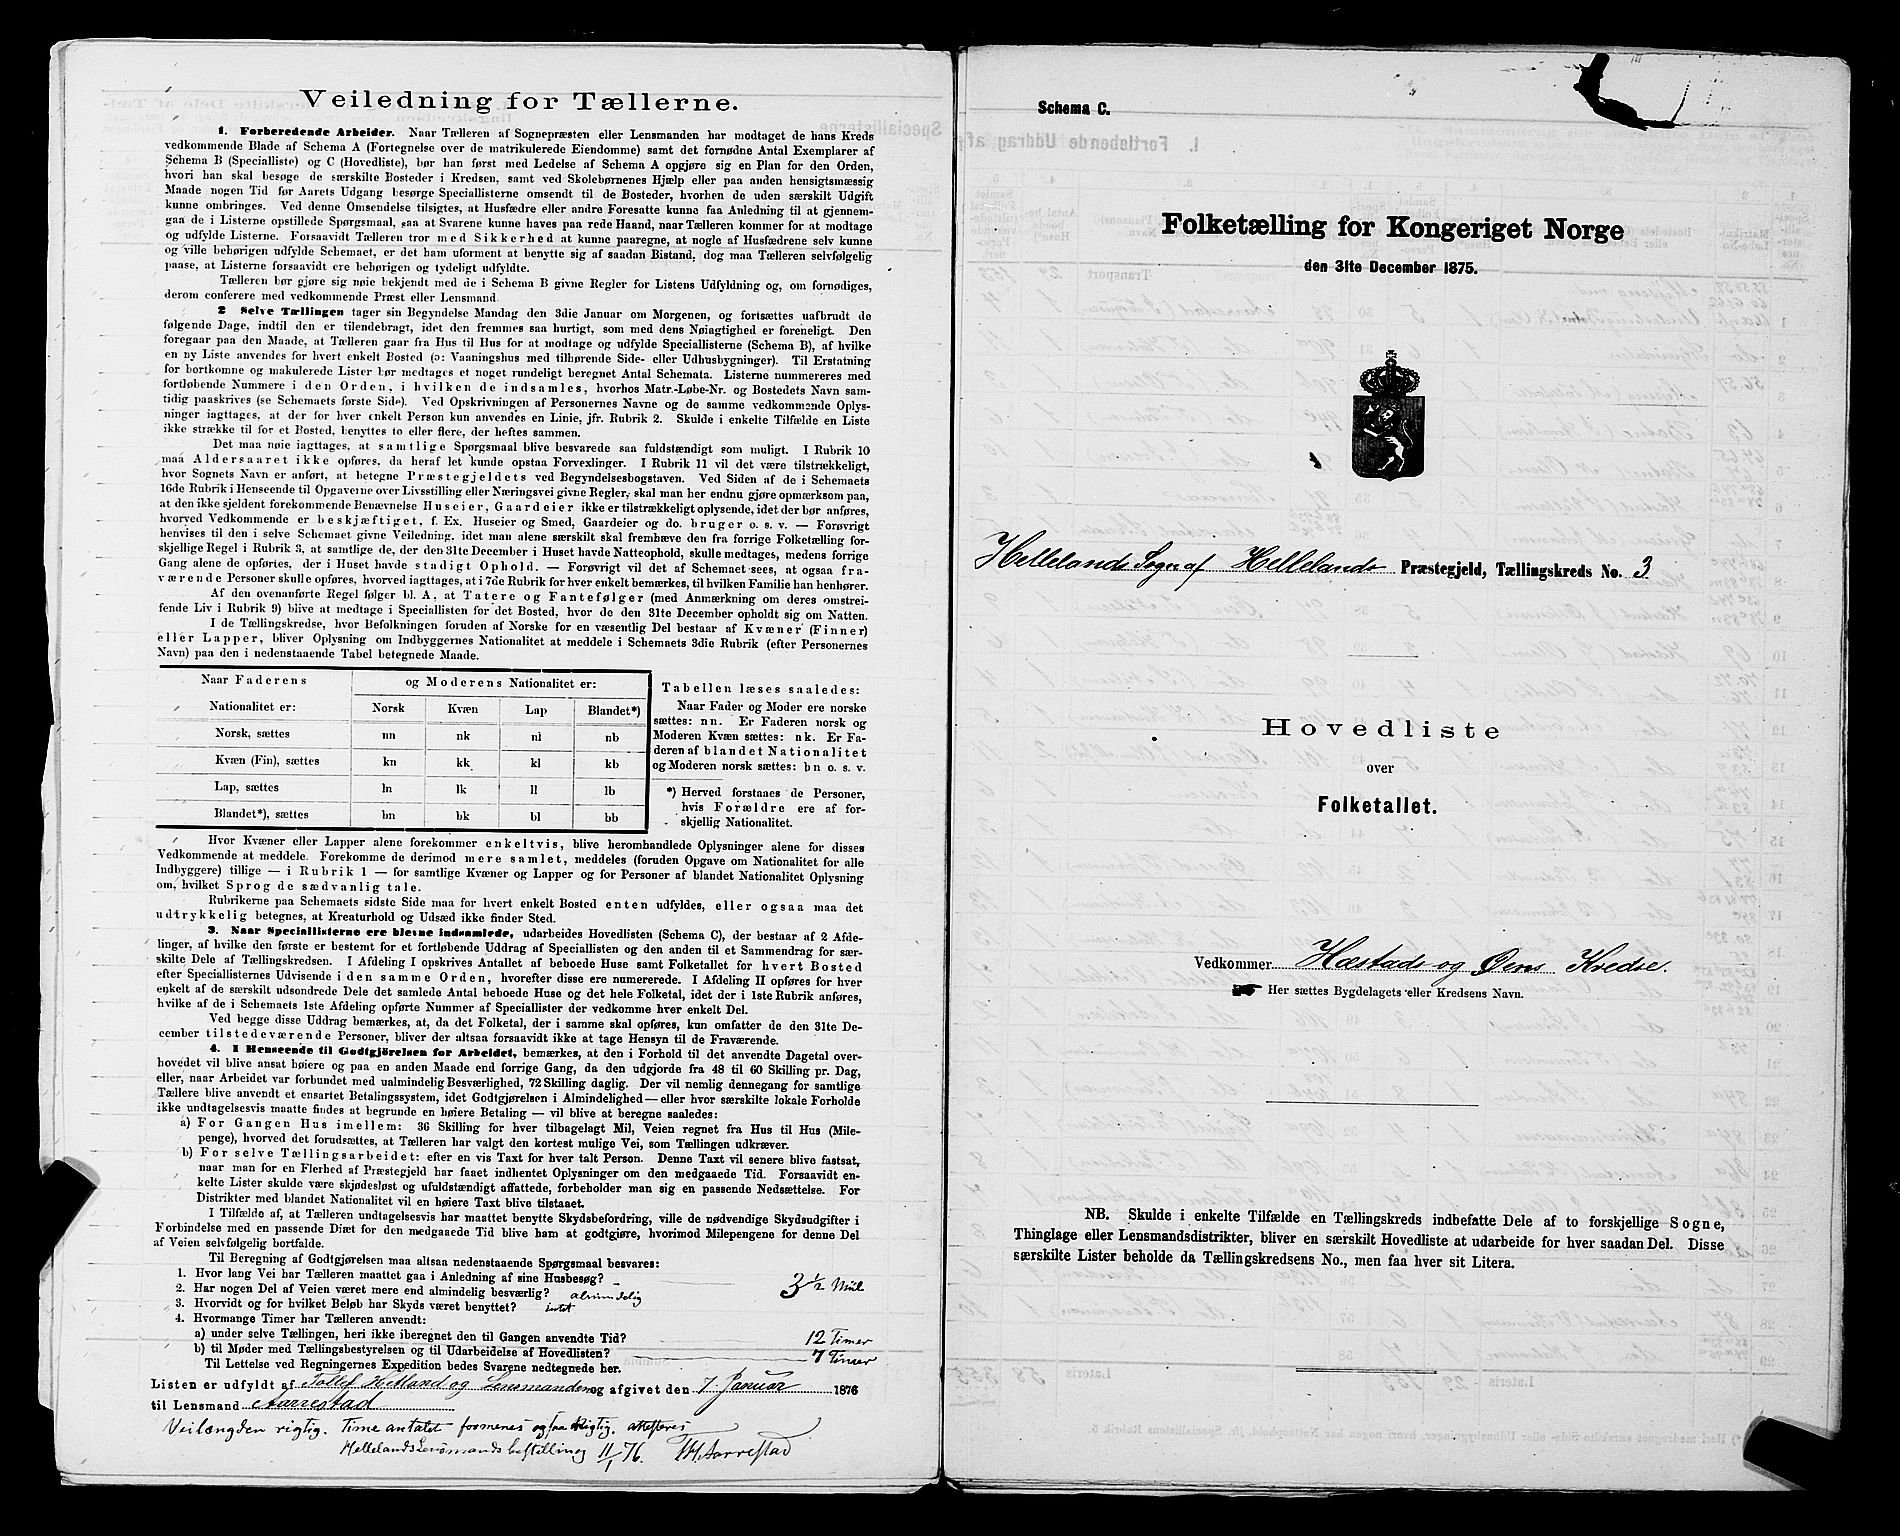 Veiledning for Tællerne.
1. Forberedende Arbeider. Naar Tælleren af Sognepræsten eller Lensmanden har modtaget de hans Kreds
vedkommende Blade af Schema A (Fortegnelse over de matrikulerede Eiendomme) samt det fornødne Antal Exemplarer af
Schema B (Specialliste) og C (Hovedliste), bør han først med Ledelse af Schema A opgjøre sig en Plan for den Orden,
hvori han skal besøge de særskilte Bosteder i Kredsen, samt ved Skolebørnenes Hjælp eller paa anden hensigtsmæssig
Maade nogen Tid før Aarets Udgang besørge Speciallisterne omsendt til de Bosteder, hvorhen de uden særskilt Udgift
kunne ombringes. Ved denne Omsendelse tilsigtes, at Husfædre eller andre Foresatte kunne faa Anledning til at gjennem-
gaa de i Listerne opstillede Spørgsmaal, saa at Svarene kunne haves paa rede Haand, naar Tælleren kommer for at modtage
og udfylde Listerne. Forsaavidt Tælleren tror med Sikkerhed at kunne paaregne, at nogle af Husfædrene selv kunne
og ville behørigen udfylde Schemaet, er det ham uforment at benytte sig af saadan Bistand, dog maa Tælleren selvfølgelig
paase, at Listerne forsaavidt ere behørigen og tydeligt udfyldte.
Tælleren bør gjøre sig nøie bekjendt med de i Schema B givne Regler for Listens Udfyldning og, om fornødiges,
derom conferere med vedkommende Præst eller Lensmand.
2 Selve Tællingen tager sin Begyndelse Mandag den 3die Januar om Morgenen, og fortsættes uafbrudt de
følgende Dage, indtil den er tilendebragt, idet den fremmes saa hurtigt, som med dens Nøiagtighed er foreneligt. Den
foregaar paa den Maade, at Tælleren gaar fra Hus til Hus for at modtage og udfylde Speciallisterne (Schema B), af hvilke
en ny Liste anvendes for hvert enkelt Bosted (ɔ: Vaaningshus med tilhørende Side- eller Udhusbygninger). Til Erstatning
for bortkomne og makulerede Lister bør medtages et noget rundeligt beregnet Antal Schemata. Listerne nummereres med
fortløbende Nummere i den Orden, i hvilken de indsamles, hvorhos Matr.-Løbe-Nr. og Bostedets Navn sam-
tidig paaskrives (se Schemaets første Side). Ved Opskrivningen af Personernes Navne og de samme vedkommende Oplys-
ninger iagttages, at der for hver enkelt Person kun anvendes en Linie, jfr. Rubrik 2. Skulde i enkelte Tilfælde en Liste
ikke strække til for et Bosted, benyttes to eller flere, der heftes sammen.
Det maa nøie iagttages, at samtlige Spørgsmaal blive besvarede saa fuldstændigt som muligt. I Rubrik 10
maa Aldersaaret ikke opføres, da heraf let kunde opstaa Forvexlinger. I Rubrik 11 vil det være tilstrækkeligt,
hvor Sognets Navn er anført, at betegne Præstegjeldets ved Begyndelsesbogstaven. Ved Siden af de i Schemaets
16de Rubrik i Henseende til Opgaverne over Livsstilling eller Næringsvei givne Regler, skal man her endnu gjøre opmærksom paa,
at den ikke sjeldent forekommende Benævnelse Huseier, Gaardeier ikke er tilstrækkeligt oplysende, idet der bør anføres,
hvorved Vedkommende er beskjæftiget, f. Ex. Huseier og Smed, Gaardeier og do. bruger o. s. v. — Forøvrigt
henvises til den i selve Schemaet givne Veiledning, idet man alene særskilt skal fremhæve den fra forrige Folketælling for-
skjellige Regel i Rubrik 3, at samtlige de, der den 31te December i Huset havde Natteophold, skulle medtages, medens forrige
Gang alene de opførtes, der i Huset havde stadigt Ophold. — Forøvrigt vil det af Schemaet sees, at ogsaa fra-
værende Personer skulle opføres, hvorved iagttages, at i 7de Rubrik for hver enkelt bemærkes, til hvilken Familie han henhører.
Af den ovenanførte Regel følger bl. A, at Tatere og Fantefølger (med Anmærkning om deres omstrei-
fende Liv i Rubrik 9) blive at medtage i Speciallisten for det Bosted, hvor de den 31te December opholdt sig om Natten.
I de Tællingskredse, hvor Befolkningen foruden af Norske for en væsentlig Del bestaar af Kvæner (Finner)
eller Lapper, bliver Oplysning om Indbyggernes Nationalitet at meddele i Schemaets 3die Rubrik (efter Personernes
Navn) paa den i nedenstaaende Tabel betegnede Maade.
Naar Faderens og Moderens Nationalitet er:
Nationalitet er: Norsk Kvæn Lap Blandet*)
Norsk, sættes nn nk nl nb
Kvæn (Fin), sættes kn kk kl kb
Lap, sættes ln lk ll lb
Blandet*), sættes bn bk bl bb
Tabellen læses saaledes:
Naar Fader og Moder ere norske
sættes: nn. Er Faderen norsk og
Moderen Kvæn sættes: nk. Er Fa-
deren af blandet Nationalitet
og Moderen norsk sættes: bn o. s. v.
*) Herved forstaaes de Personer,
hvis Forældre ere af for-
skjellig Nationalitet.
Hvor Kvæner eller Lapper alene forekommer enkeltvis, blive heromhandlede Oplysninger alene for disses
Vedkommende at meddele. Forekomme de derimod mere samlet, meddeles (foruden Opgave om Nationalitet for alle
Indbyggere) tillige — i Rubrik 1 — for samtlige Kvæner og Lapper og for Personer af blandet Nationalitet Oplysning
om, hvilket Sprog de sædvanlig tale.
Rubrikerne paa Schemaets sidste Side maa for hvert enkelt Bosted enten udfyldes, eller ogsaa maa det
udtrykkelig betegnes, at Kreaturhold og Udsæd ikke finder Sted.
3. Naar Speciallisterne ere blevne indsamlede, udarbeides Hovedlisten (Schema C), der bestaar af 2 Afde-
linger, af hvilke den første er bestemt for et fortløbende Uddrag af Speciallisten og den anden til et Sammendrag for sær-
skilte Dele af Tællingskredsen. I Afdeling I opskrives Antallet af beboede Huse samt Folketallet for hvert Bosted
efter Speciallisternes Udvisende i den samme Orden, hvorefter disse ere numererede. I Afdeling II opføres for hver
enkelt af de særskilt udsondrede Dele det samlede Antal beboede Huse og det hele Folketal, idet der i 1ste Rubrik anføres,
hvilke af de i Schemaets 1ste Afdeling opførte Nummer af Speciallister der vedkomme hver enkelt Del.
Ved begge disse Uddrag bemærkes, at, da det Folketal, der i samme skal opføres, kun omfatter de den 31te De-
cember tilstedeværende Personer, bliver der altsaa forsaavidt ikke at tage Hensyn til de Fraværende.
4. I Henseende til Godtgjörelsen for Arbeidet, bemærkes, at den i Forhold til det anvendte Dagetal over-
hovedet vil blive ansat høiere og paa en anden Maade end forrige Gang, da den udgjorde fra 48 til 60 Skilling pr. Dag,
eller, naar Arbeidet var forbundet med ualmindelig Besværlighed, 72 Skilling daglig. Der vil nemlig dennegang for samtlige
Tællere blive anvendt et ensartet Betalingssystem, idet Godtgjörelsen i Almindelighed — eller hvor særskilte lokale Forholde
ikke undtagelsesvis maatte findes at begrunde en høiere Betaling — vil blive at beregne saaledes:
a) For Gangen Hus imellem: 36 Skilling for hver tilbagelagt Mil, Veien regnet fra Hus til Hus (Mile-
penge), hvorved det forudsættes, at Tælleren har valgt den kortest mulige Vei, som Tællingen udkræver.
b) For selve Tællingsarbeidet: efter en vis Taxt for hver talt Person. Denne Taxt vil senere blive fastsat,
naar man for en Flerhed af Præstegjeld har faaet indhentet Oplysninger om den medgaaede Tid. Forsaavidt en-
kelte Lister skulde være skjødesløst og ufuldstændigt affattede, forbeholder man sig en passende Nedsættelse. For
Distrikter med blandet Nationalitet vil en høiere Taxt blive tilstaaet.
I Tilfælde af, at Tælleren undtagelsesvis har maattet benytte Skydsbefordring, ville de nødvendige Skydsudgifter i
Forbindelse med en passende Diæt for den medgaaede Tid blive ham at godtgjøre, hvorimod Milepengene for denne Del
af Veien selvfølgelig bortfalde.
Til Beregning af Godtgjørelsen maa altsaa nedenstaaende Spørgsmaal besvares:
1. Hvor lang Vei har Tælleren maattet gaa i Anledning af sine Husbesøg? 3 1/2 Miil
2. Har nogen Del af Veien været mere end almindelig besværlig? almindelig
3. Hvorvidt og for hvilket Beløb har Skyds været benyttet? intet
4. Hvormange Timer har Tælleren anvendt:
a) under selve Tællingen, heri ikke iberegnet den til Gangen anvendte Tid? 12 Timer
b) til Møder med Tællingsbestyrelsen og til Udarbeidelse af Hovedlisten? 7 Timer
Til Lettelse ved Regningernes Expedition bedes Svarene nedtegnede her.
Listen er udfyldt af Tollef Hetland og Lensmanden og afgivet den 7 Januar 1876
til Lensmand Aarrestad
Veilængden rigtig. Time antalet formenes ogsaa Rigtig, attesteres
Hellelands Lensmandsbestilling 11/1 76. TH Aarrestad
Schema C.
Folketælling for Kongeriget Norge
den 31te December 1875.
Hellelands Sogn af Hellelands Præstegjeld, Tællingskreds No. 3
Hovedliste
over
Folketallet.
Vedkommer Hæstads og Øens Kredse.
Her sættes Bygdelagets eller Kredsens Navn.
NB. Skulde i enkelte Tilfælde en Tællingskreds indbefatte Dele af to forskjellige Sogne,
Thinglage eller Lensmandsdistrikter, bliver en særskilt Hovedliste at udarbeide for hver saadan Del. Disse
særskilte Lister beholde da Tællingskredsens No., men faa hver sit Litera.